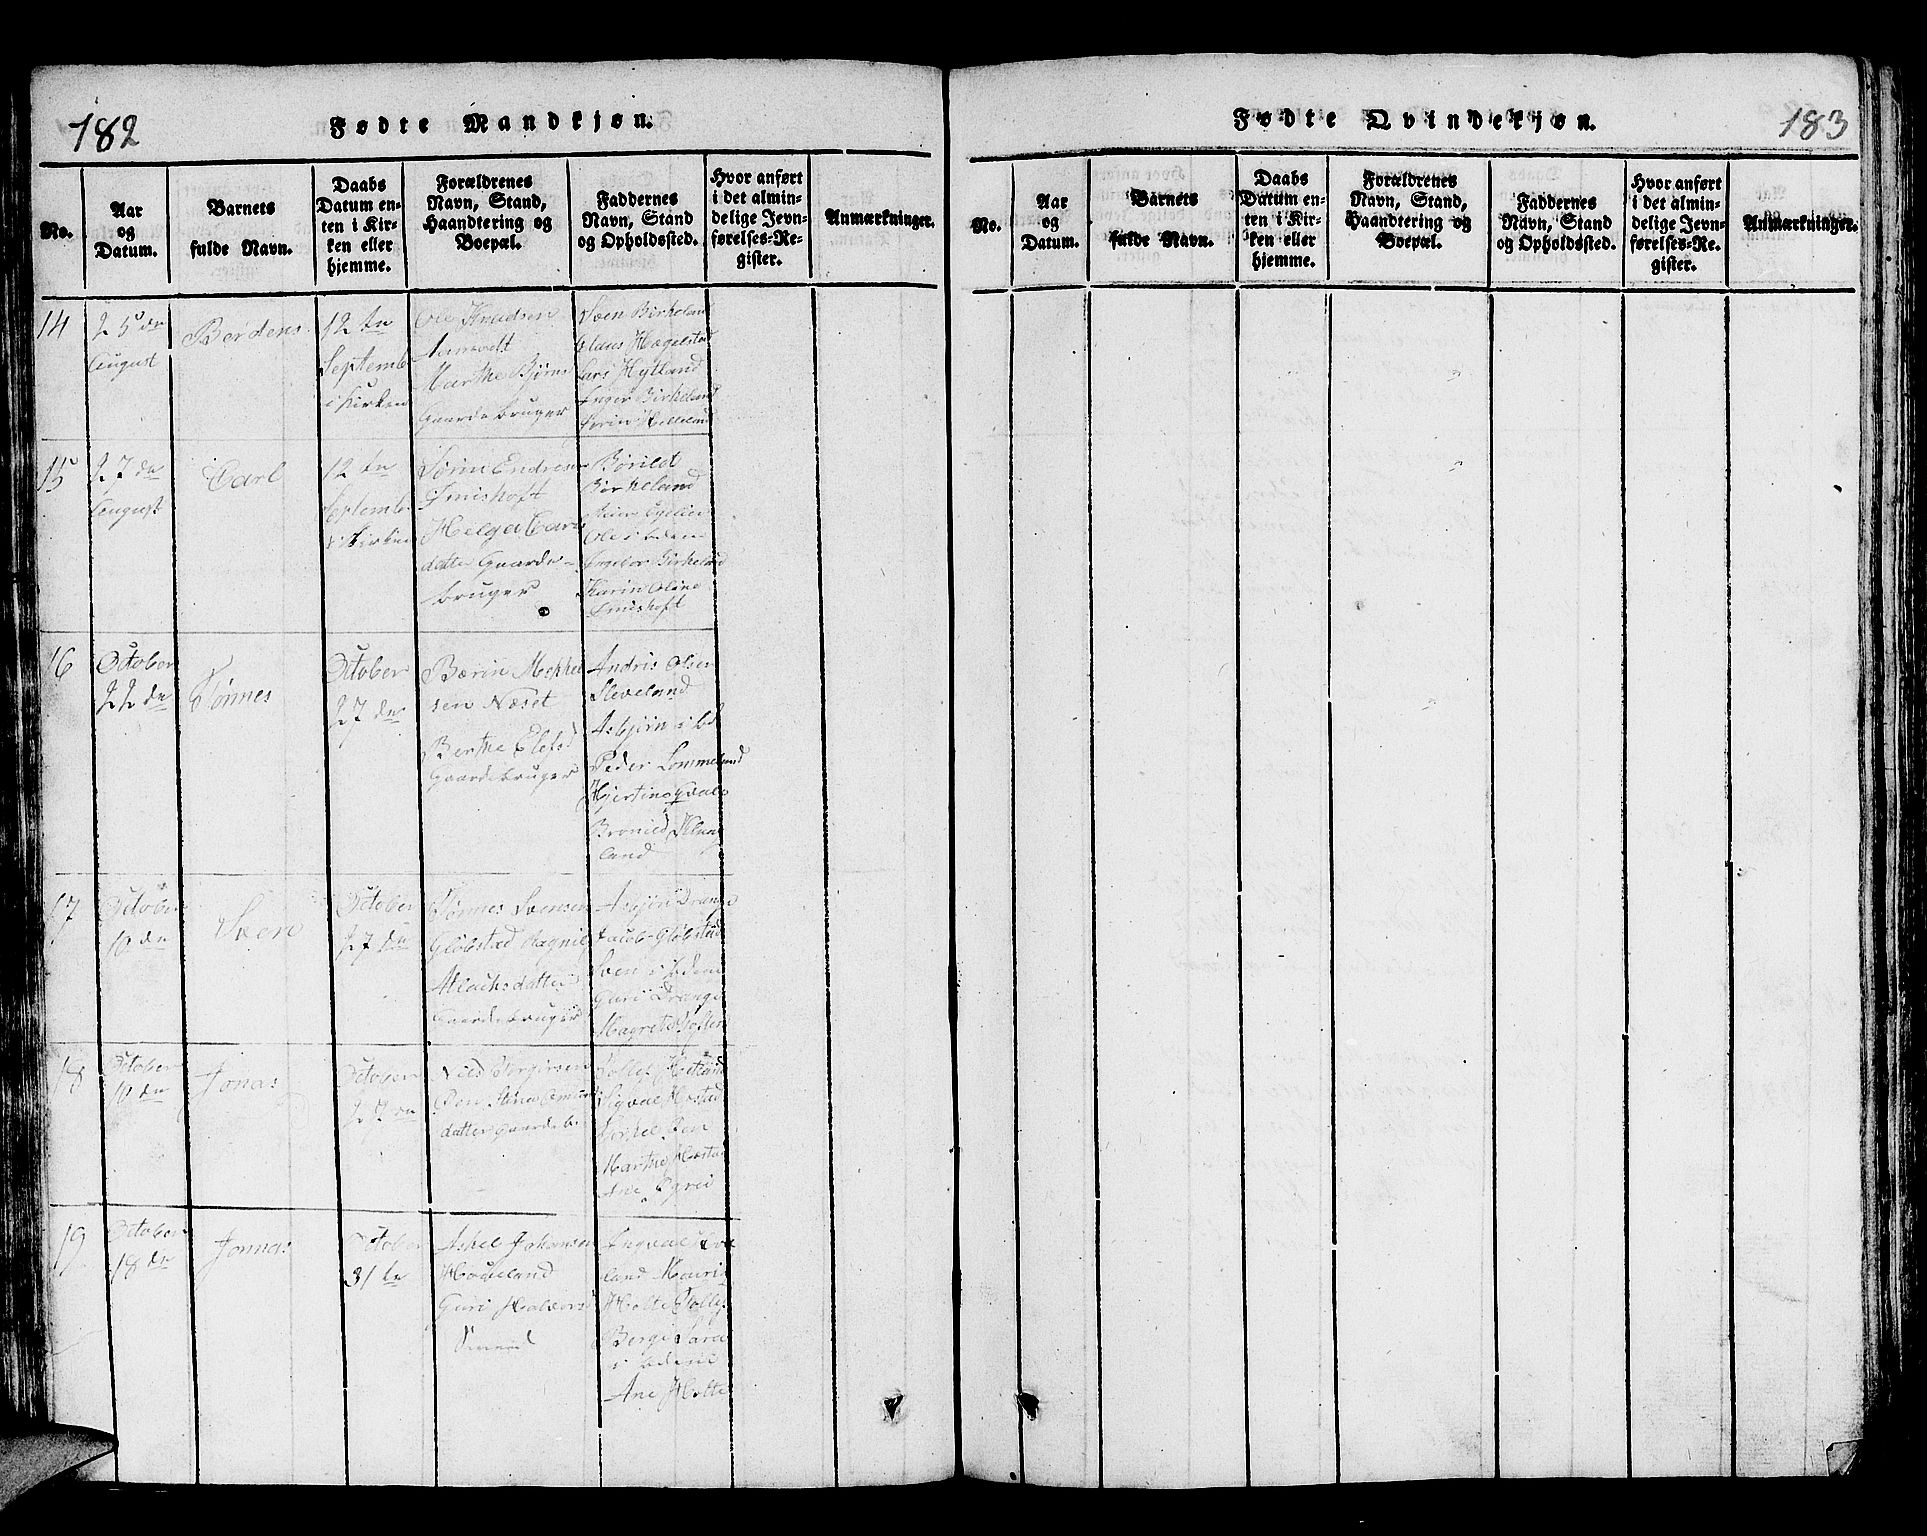 182
Fødte Mandkjøn.
No.
Aar
og
Datum.
Barnets
fulde Navn.
Daabs
Datum en-
ten i Kir-
ken eller
hjemme.
Forældrenes
Navn, Stand,
Haandtering og
Boepæl.
Faddernes
Navn, Stand
og Opholdssted.
Hvor anført
i det almin-
delige Jevn-
førelses-Re-
gister.
Anmærkninger.
14
25 de
August
Berdens
12 te
Septembe
i Kirken
Ole Knudsen
Marthe Bjørns
Gaardebruger
Sven Birkeland
Claus Hegelstad
Lars Hytland
Inger Birkeland
Sirin Helleland
15
27 de
August
Carl
12 te
Septembe
i Kirken
Sørin Endresen
Smishoft
Helga Carls
datter Gaarde-
bruger
Børild
Birkeland
Ole i bdem
Ingebor Birkeland
Karin Oline
Smishoft
16
October
22 de
Tønnes
October
27 de
Bærin Mekkel
sen Næset
Berthe Elefsd
Gaardebruger
Andris Olsen
Sleveland
Asbjørn ibd
Peder Lommeland
Kjertine Qvale
Bronild Klung
land
17
October
10 de
Sven
October
27 de
Tønnes Svensen
Globstad Ragnil
Atlachsdatter
Gaardebruger
Asbjørn Drange
Jacob Globstad
Sven i bdem
Guri Drange
Magrete
18
October
10 de
Jonas
October
27 de
Niels Torgirsen
datter Gaardeb.
Tollef Hetland
Sigval Hæstad
Torkel
Marthe Hæstad
Ane Øgrei
19
October
18 de
Jonnas
October
31 te
Askel Johansen
Hoveland
Guri Halvors
Ingval Hove
land Mauri
Holte Tollef
Berge Sara
i bdem
Ane Holte
183
Fødte Qvindekjøn.
No.
Aar
og
Datum.
Barnets
fulde Navn.
Daabs
Datum en-
ten i Kir-
ken eller
hjemme.
Forældrenes
Navn, Stand,
Haandtering og
Boepæl.
Faddernes
Navn, Stand
og Opholdssted.
Hvor anført
i det almin-
delige Jevn-
førelses-Re-
gister.
Anmærkninger.